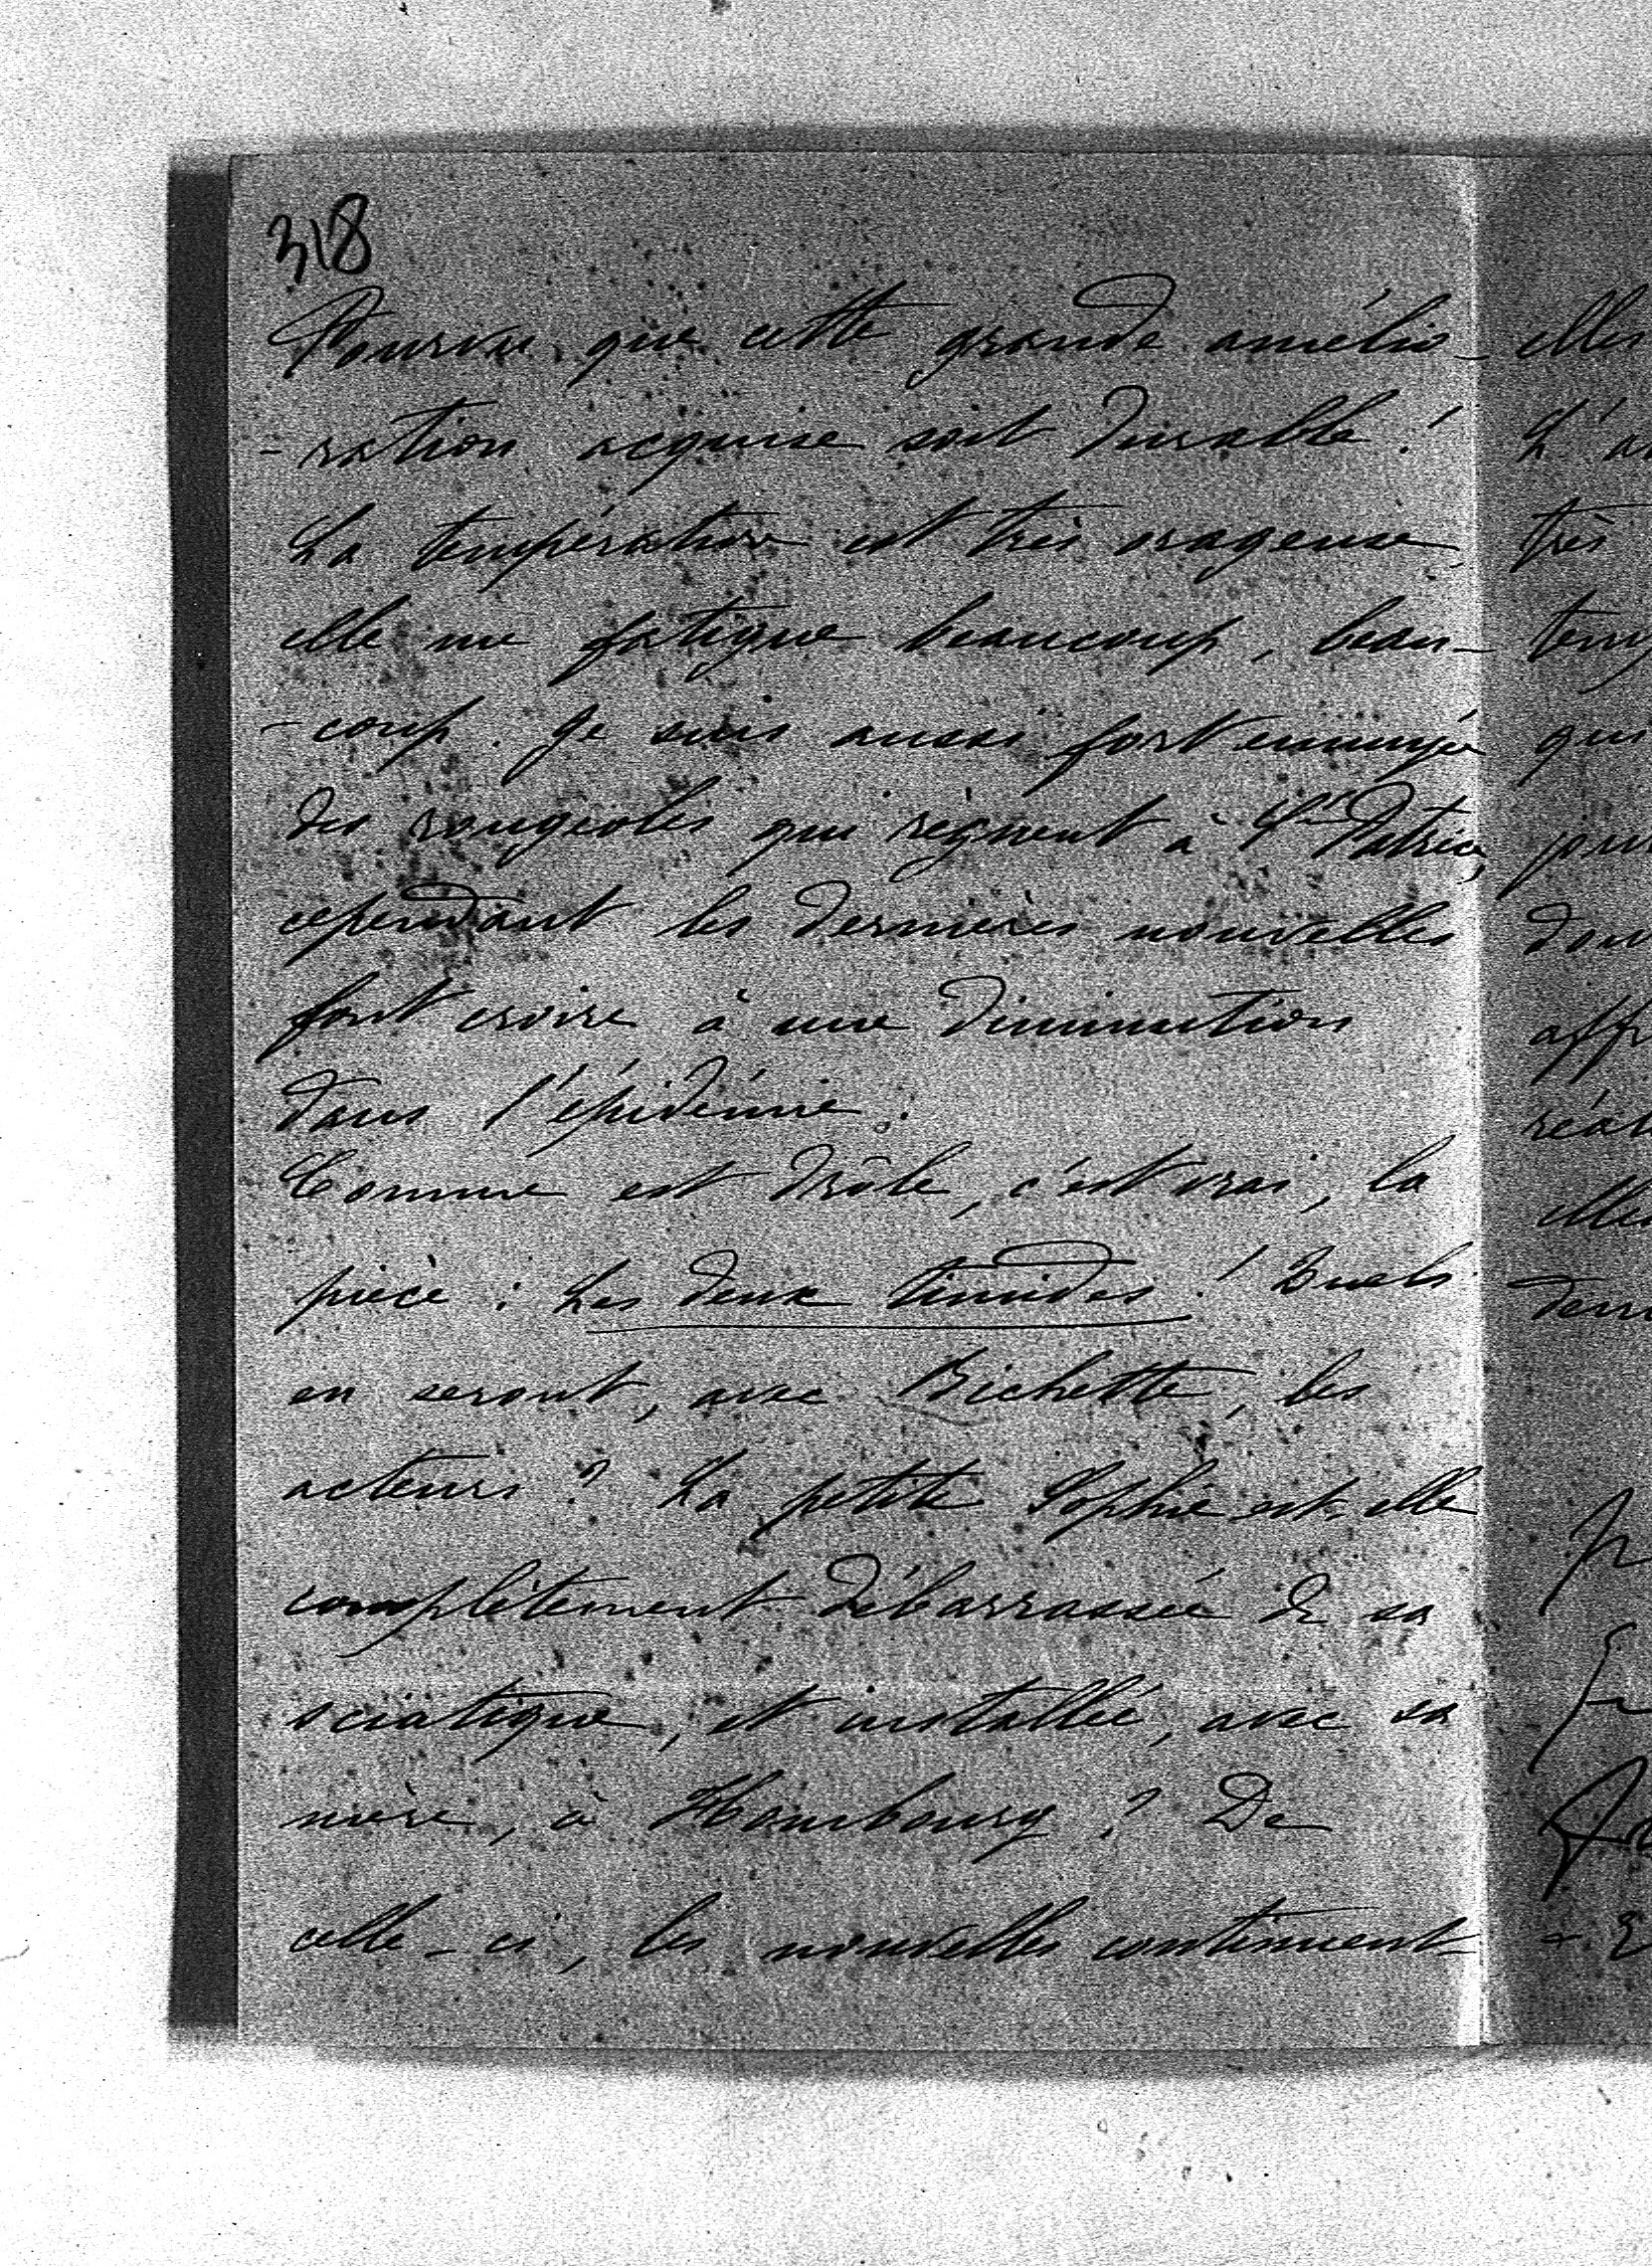 318
Pourvu que cette grande amélio-
-ration acquise soit durable !
La température est très orageuse,
elle me fatigue beaucoup, beau-
-coup. Je suis aussi fort ennuyée
des rougeoles qui règnent à St Patrice,
cependant les dernières nouvelles
font croire à une diminution
dans l'épidémie.
Comme est drôle, c'est vrai, la
pièce : Les deux timides ! Quels
en seront, avec Bichette, les
acteurs ? La petite Sophie est-elle
complètement débarrassée de sa
sciatique, et installée, avec sa
mère, à Hombourg ? De
celle-ci, les nouvelles continuent
elles
très
qui